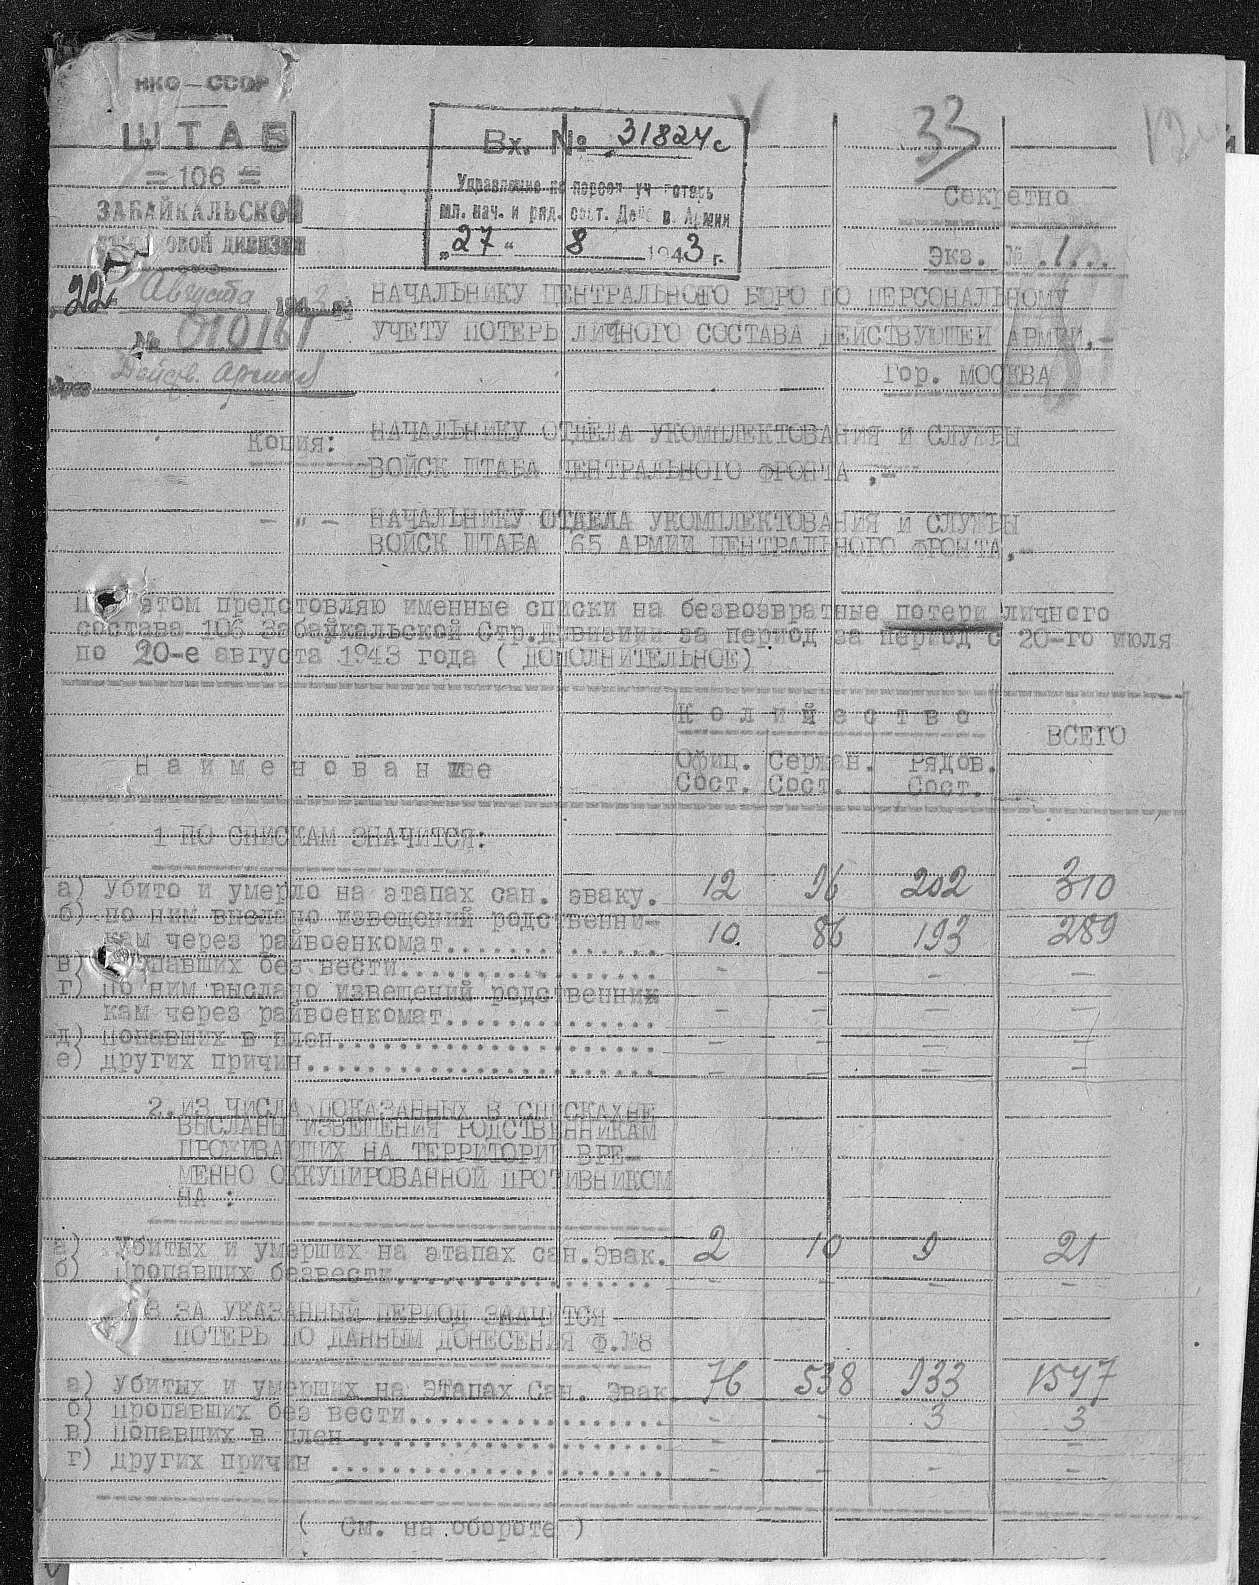 НКО — СССР
ШТАБ
= 106 =
ЗАБАЙКАЛЬСКОЙ
ДИВИЗИИ
22 Августа 1943
№ 010161
Действ. Армия
Вх. № 31824с
Управление по персон уч потерь
мл. нач. и ряд. сост. Дейс в. Армии
„27“ 8 1943 г.
33
Секретно
Экз. № 1.
НАЧАЛЬНИКУ ЦЕНТРАЛЬНОГО БЮРО ПО ПЕРСОНАЛЬНОМУ
УЧЕТУ ПОТЕРЬ ЛИЧНОГО СОСТАВА ДЕЙСТВУЮЩЕЙ АРМИИ.-
Гор. МОСКВА
Копия: НАЧАЛЬНИКУ ОТДЕЛА УКОМПЛЕКТОВАНИЯ И СЛУЖБЫ
ВОЙСК ШТАБА ЦЕНТРАЛЬНОГО ФРОНТА .-
- " - НАЧАЛЬНИКУ ОТДЕЛА УКОМПЛЕКТОВАНИЯ И СЛУЖБЫ
ВОЙСК ШТАБА 65 АРМИИ ЦЕНТРАЛЬНОГО ФРОНТА.-
этом предстовляю именные списки на безвозвратные потери личного
состава 106 Забайкальской Стр.Дивизии за период за период с 20-го июля
по 20-е августа 1943 года ( ДОПОЛНИТЕЛЬНОЕ)
Наименование
Количество
ВСЕГО
Офиц. Сост.
Сержан. Сост.
Рядов. Сост.
1 ПО СПИСКАМ ЗНАЧИТСЯ:
а) Убито и умерло на этапах сан. эваку. 12 96 202 310
б) по ним выслано извещений родственни-
кам через райвоенкомат............... 10 86 193 289
в) пропавших без вести................ - - -
г) по ним выслано извещений родственник
кам через райвоенкомат............... - - - -
д) попавших в плен.................... - - - -
е) других причин...................... - - - -
2. ИЗ ЧИСЛА ПОКАЗАННЫХ В СПИСКАХ НЕ
ВЫСЛАНЫ ИЗВЕЩЕНИЯ РОДСТВЕННИКАМ
ПРОЖИВАЮЩИХ НА ТЕРРИТОРИИ ВРЕ-
МЕННО ОККУПИРОВАННОЙ ПРОТИВНИКОМ
НА :
а) Убитых и умерших на этапах сан.Эвак. 2 10 9 21
б) Пропавших безвести................. - - - -
3 ЗА УКАЗАННЫЙ ПЕРИОД ЗНАЧИТСЯ
ПОТЕРЬ ПО ДАННЫМ ДОНЕСЕНИЯ Ф.№8
а) Убитых и умерших на Этапах Сан. Эвак 76 538 933 1547
б) пропавших без вести................ - - 3 3
в) попавших в плен.................... - -
г) других причин ..................... - - - -
( См. на обороте )